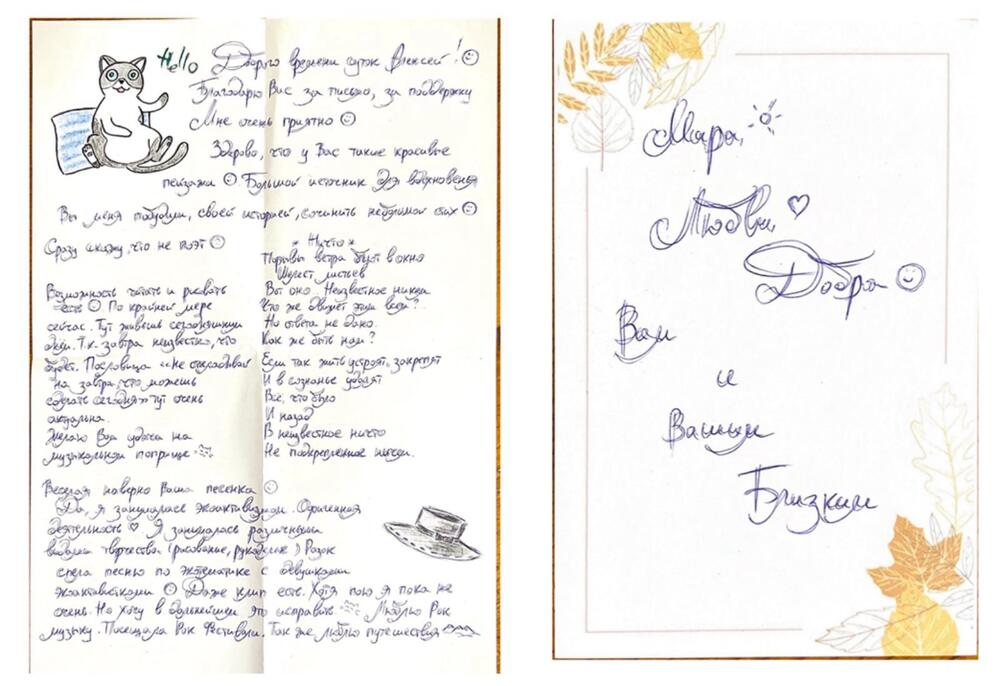 Hello Доброго времени суток Алексей! ☺
Благодарю Вас за письмо, за поддержку
Мне очень приятно ☺
Здорово, что у Вас такие красивые
пейзажи ☺. Большой источник для вдохновенья
Вы меня побудили, своей историей, сочинить небольшой стих ☺
Сразу скажу, что не поэт ☺
Возможность читать и рисовать
есть ☺ По крайней мере
сейчас. Тут живёшь сегодняшним
днём. Т.к. завтра неизвестно, что
будет. Пословица "Не откладывай
на завтра, что можешь
сделать сегодня" тут очень
актуальна.
Желаю Вам удачи на
музыкальном поприще
* Ничто *
Порывы ветра бьют в окно
Шелест листьев
Вот оно. Неизвестное никем
Что же движет этим всем?
Но ответа не дано.
Как же быть нам?
Если так жить устроят, закрепят
И в сознанье удалят
Всё, что было
И назад
В неизвестное ничто
Не подкрепленное никем.
Веселая наверно Ваша песенка ☺
Да, я занималась экоактивизмом. Офигенная
деятельность ♡ Я занималась различными
видами творчества (рисование, рукоделие) Разок
спела песню по экотематике с девушками
экоактивистками ☺ Даже клип есть. Хотя пою я пока не
очень. Но хочу в дальнейшем это исправить Люблю Рок
музыку. Посещала Рок Фестивали. Так же люблю путешествия
Мира,
Любви, ♡
Добра ☺
Вам
и
Вашим
Близким